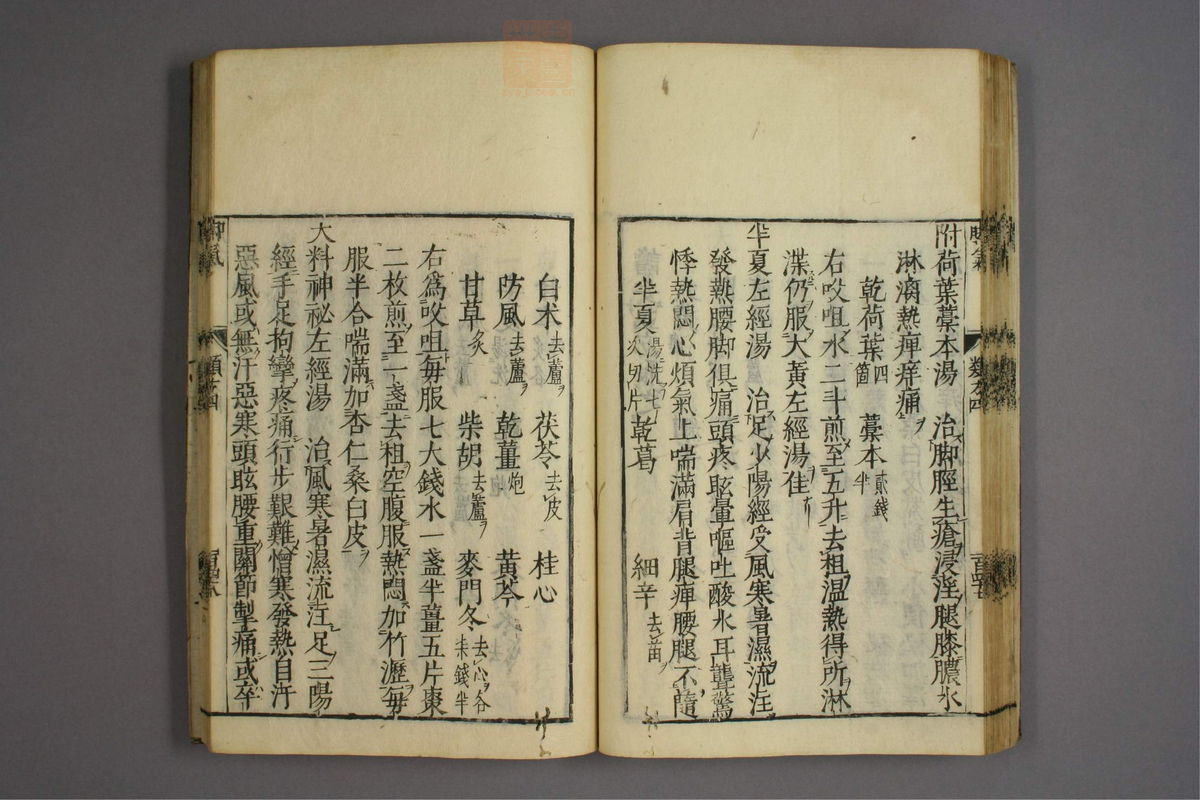 附荷葉藁本湯　治脚脛生瘡浸淫腿膝膿水
淋漓熱痺痒痛
乾荷葉四箇　藁本貳錢半
右㕮咀水二斗煎至五升去柤温熱得所淋
渫仍服大黃左經湯佳
半夏左經湯　治足少陽經受風寒暑濕流注
發熱腰脚俱痛頭疼眩暈嘔吐酸水耳聾驚
悸熱悶心煩氣上喘滿肩背腿痺腰腿不隨
半夏湯洗七次切片　乾葛　細辛去苗
白术去蘆　茯苓去皮　桂心
防風去蘆　乾薑炮　黄芩
甘草炙　柴胡去蘆　麥門冬去心各
右爲㕮咀每服七大錢水一盞半薑五片棗
二枚煎至一盞去柤空腹服熱悶加竹瀝每
服半合喘滿加杏仁桑白皮
大料神秘左經湯　治風寒暑濕流注足三陽
經手足拘攣疼痛行步艱難憎寒發熱自汗
惡風或無汗惡寒頭眩腰重關節掣痛或卒
脚氣
類方四